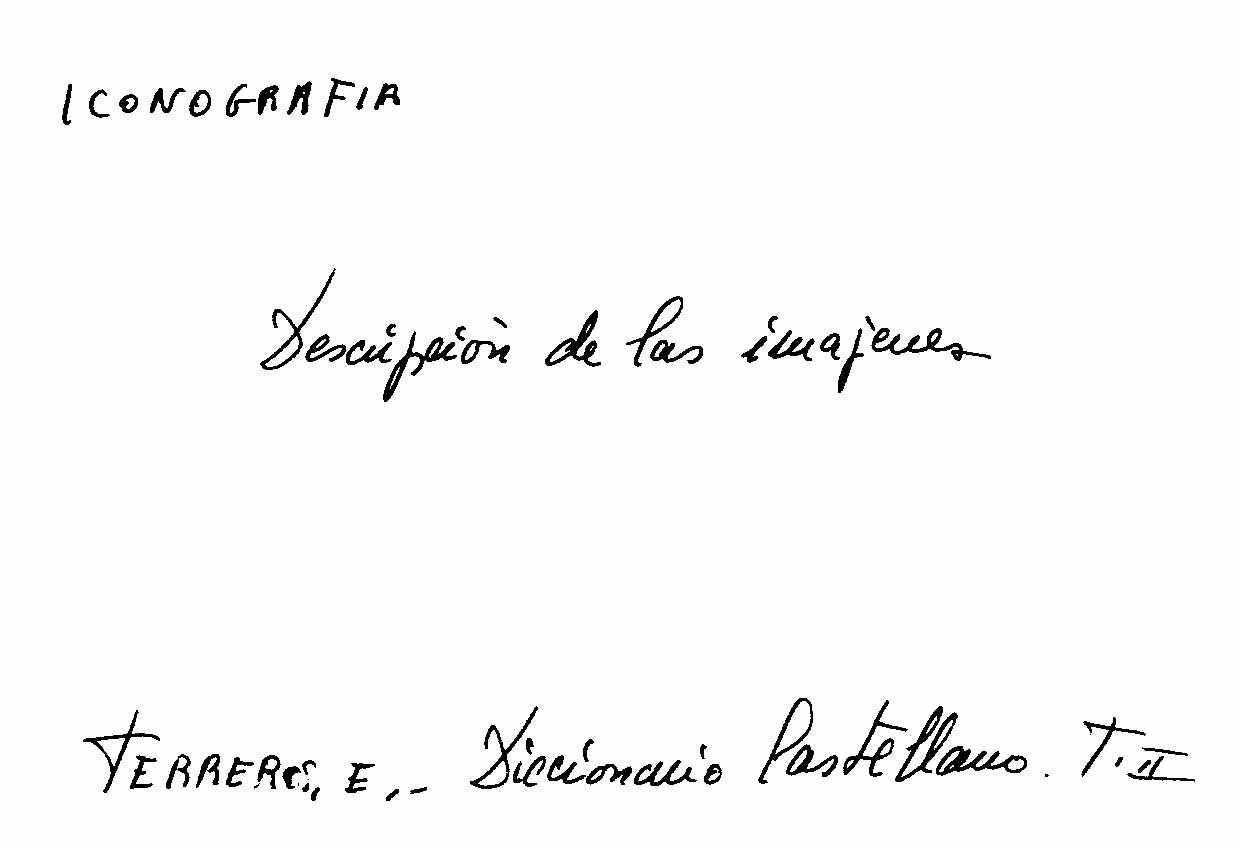 ICONOGRAFIA
Descripción de las imajenes
TERREROS, E.,- Diccionario Castellano. T. II